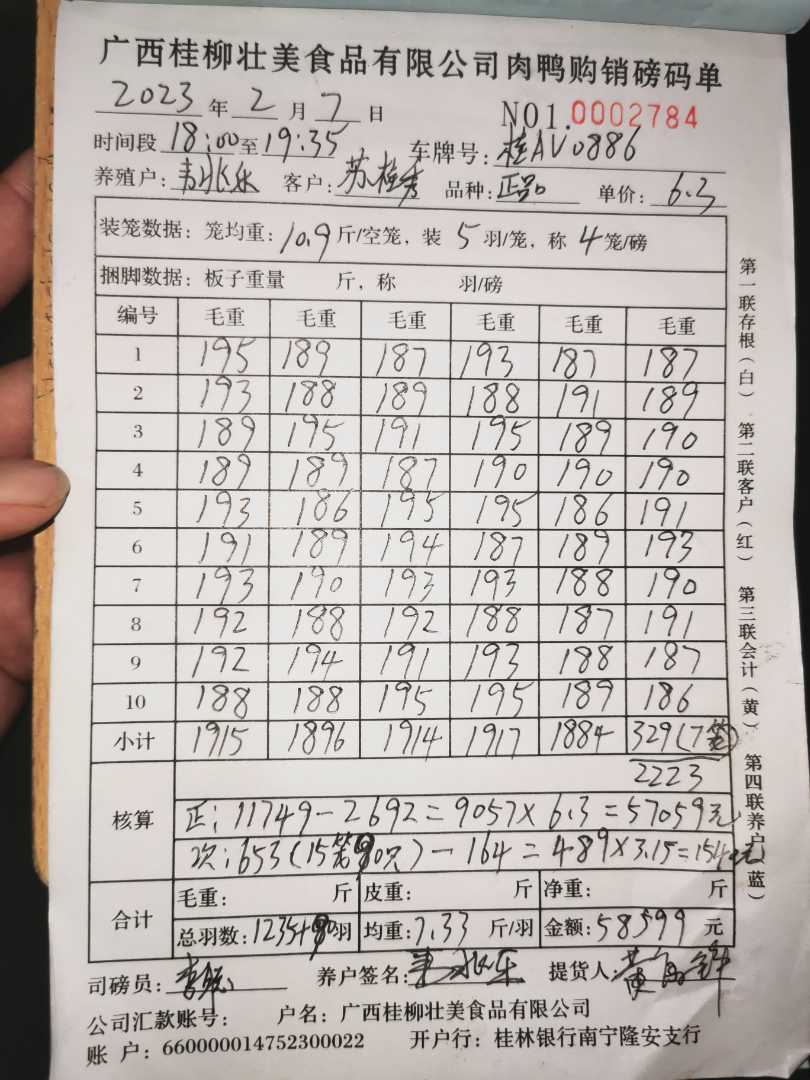 广西桂柳壮美食品有限公司肉鸭购销磅码单
2023 年 2 月 7 日 NO1.0002784
时间段 18:00 至 19:35 车牌号: 桂AV0886
养殖户: 韦兆乐 客户: 苏桂秀 品种: 正品 单价: 6.3
装笼数据: 笼均重: 10.9 斤/空笼, 装 5 羽/笼, 称 4 笼/磅
捆脚数据: 板子重量 斤, 称 羽/磅
编号 毛重 毛重 毛重 毛重 毛重 毛重
1 195 189 187 193 187 187
2 193 188 189 188 191 189
3 189 195 191 195 189 190
4 189 189 187 190 190 190
5 193 186 195 195 186 191
6 191 189 194 187 189 193
7 193 190 193 193 188 190
8 192 188 192 188 187 191
9 192 194 191 193 188 187
10 188 188 195 195 189 186
小计 1915 1896 1914 1917 1884 329(7笼)
2223
核算
正: 11749-2692=9057×6.3=57059元
次: 653(15笼90只)-164=489×3.15=1540元
合计
毛重: 斤 皮重: 斤 净重: 斤
总羽数: 1235+90羽 均重: 7.33 斤/羽 金额: 58599 元
司磅员: 养户签名: 韦兆乐 提货人:
公司汇款账号: 户名: 广西桂柳壮美食品有限公司
账 户: 660000014752300022 开户行: 桂林银行南宁隆安支行
第一联存根(白) 第二联客户(红) 第三联会计(黄) 第四联养户(蓝)